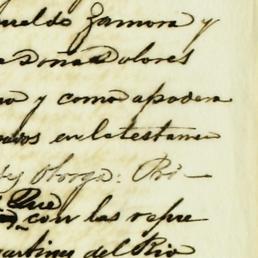 Zamora y
Doña Dolores
y como apodera
en la testamen
y Otorga: Pri-
Que
con las repre
Martinez del Rio